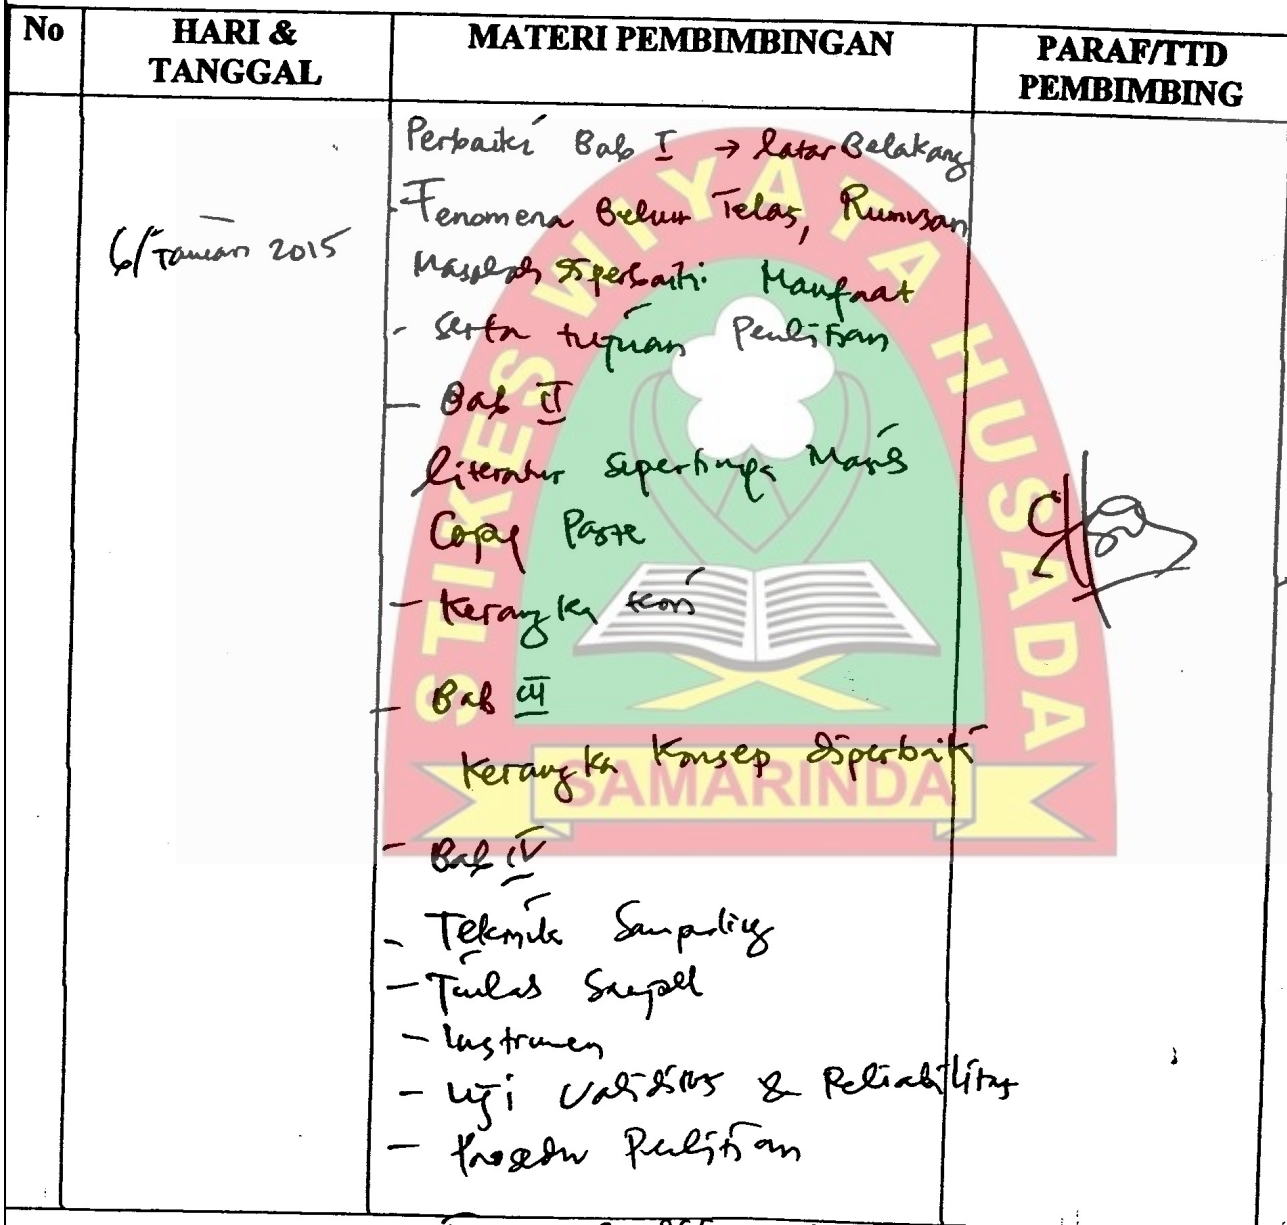 No
HARI &
TANGGAL
MATERI PEMBIMBINGAN
PARAF/TTD
PEMBIMBING
6/Januari 2015
Perbaiki Bab I → latar Belakang
- Fenomena Belum Jelas, Rumusan
Masalah diperbaiki. Manfaat
- serta tujuan Penelitian
- Bab II
literatur sepertinya Masih
Copy Paste
- Kerangka teori
- Bab III
Kerangka Konsep diperbaiki
- Bab IV
- Teknik Sampling
- Jumlah Sampel
- Instrumen
- Uji Validitas & Reliabilitas
- Prosedur Penelitian
STIKES WIYATA HUSADA
SAMARINDA